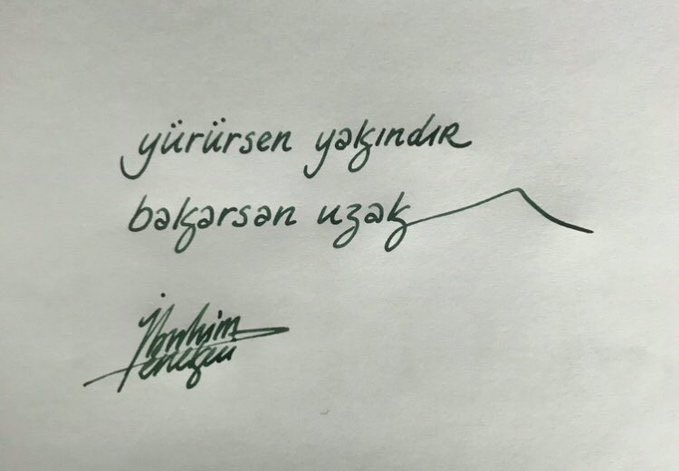 yürürsen yakındır
bakarsan uzak
İbrahim
Tenekeci